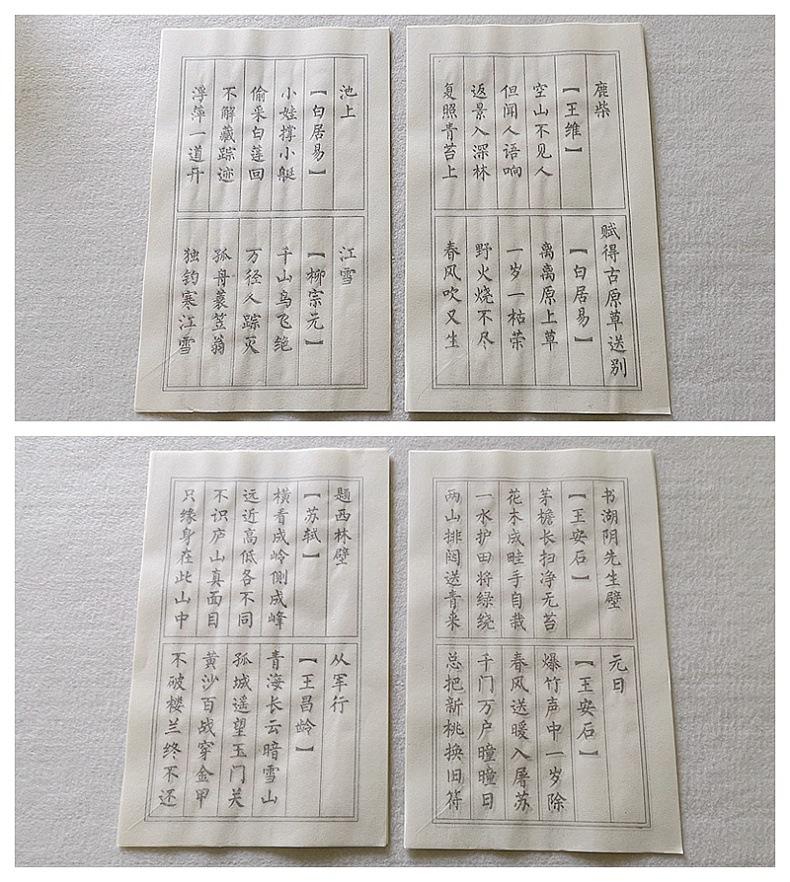 鹿柴
【王维】
空山不见人
但闻人语响
返景入深林
复照青苔上
赋得古原草送别
【白居易】
离离原上草
一岁一枯荣
野火烧不尽
春风吹又生
池上
【白居易】
小娃撑小艇
偷采白莲回
不解藏踪迹
浮萍一道开
江雪
【柳宗元】
千山鸟飞绝
万径人踪灭
孤舟蓑笠翁
独钓寒江雪
书湖阴先生壁
【王安石】
茅檐长扫净无苔
花木成畦手自栽
一水护田将绿绕
两山排闼送青来
元日
【王安石】
爆竹声中一岁除
春风送暖入屠苏
千门万户曈曈日
总把新桃换旧符
题西林壁
【苏轼】
横看成岭侧成峰
远近高低各不同
不识庐山真面目
只缘身在此山中
从军行
【王昌龄】
青海长云暗雪山
孤城遥望玉门关
黄沙百战穿金甲
不破楼兰终不还